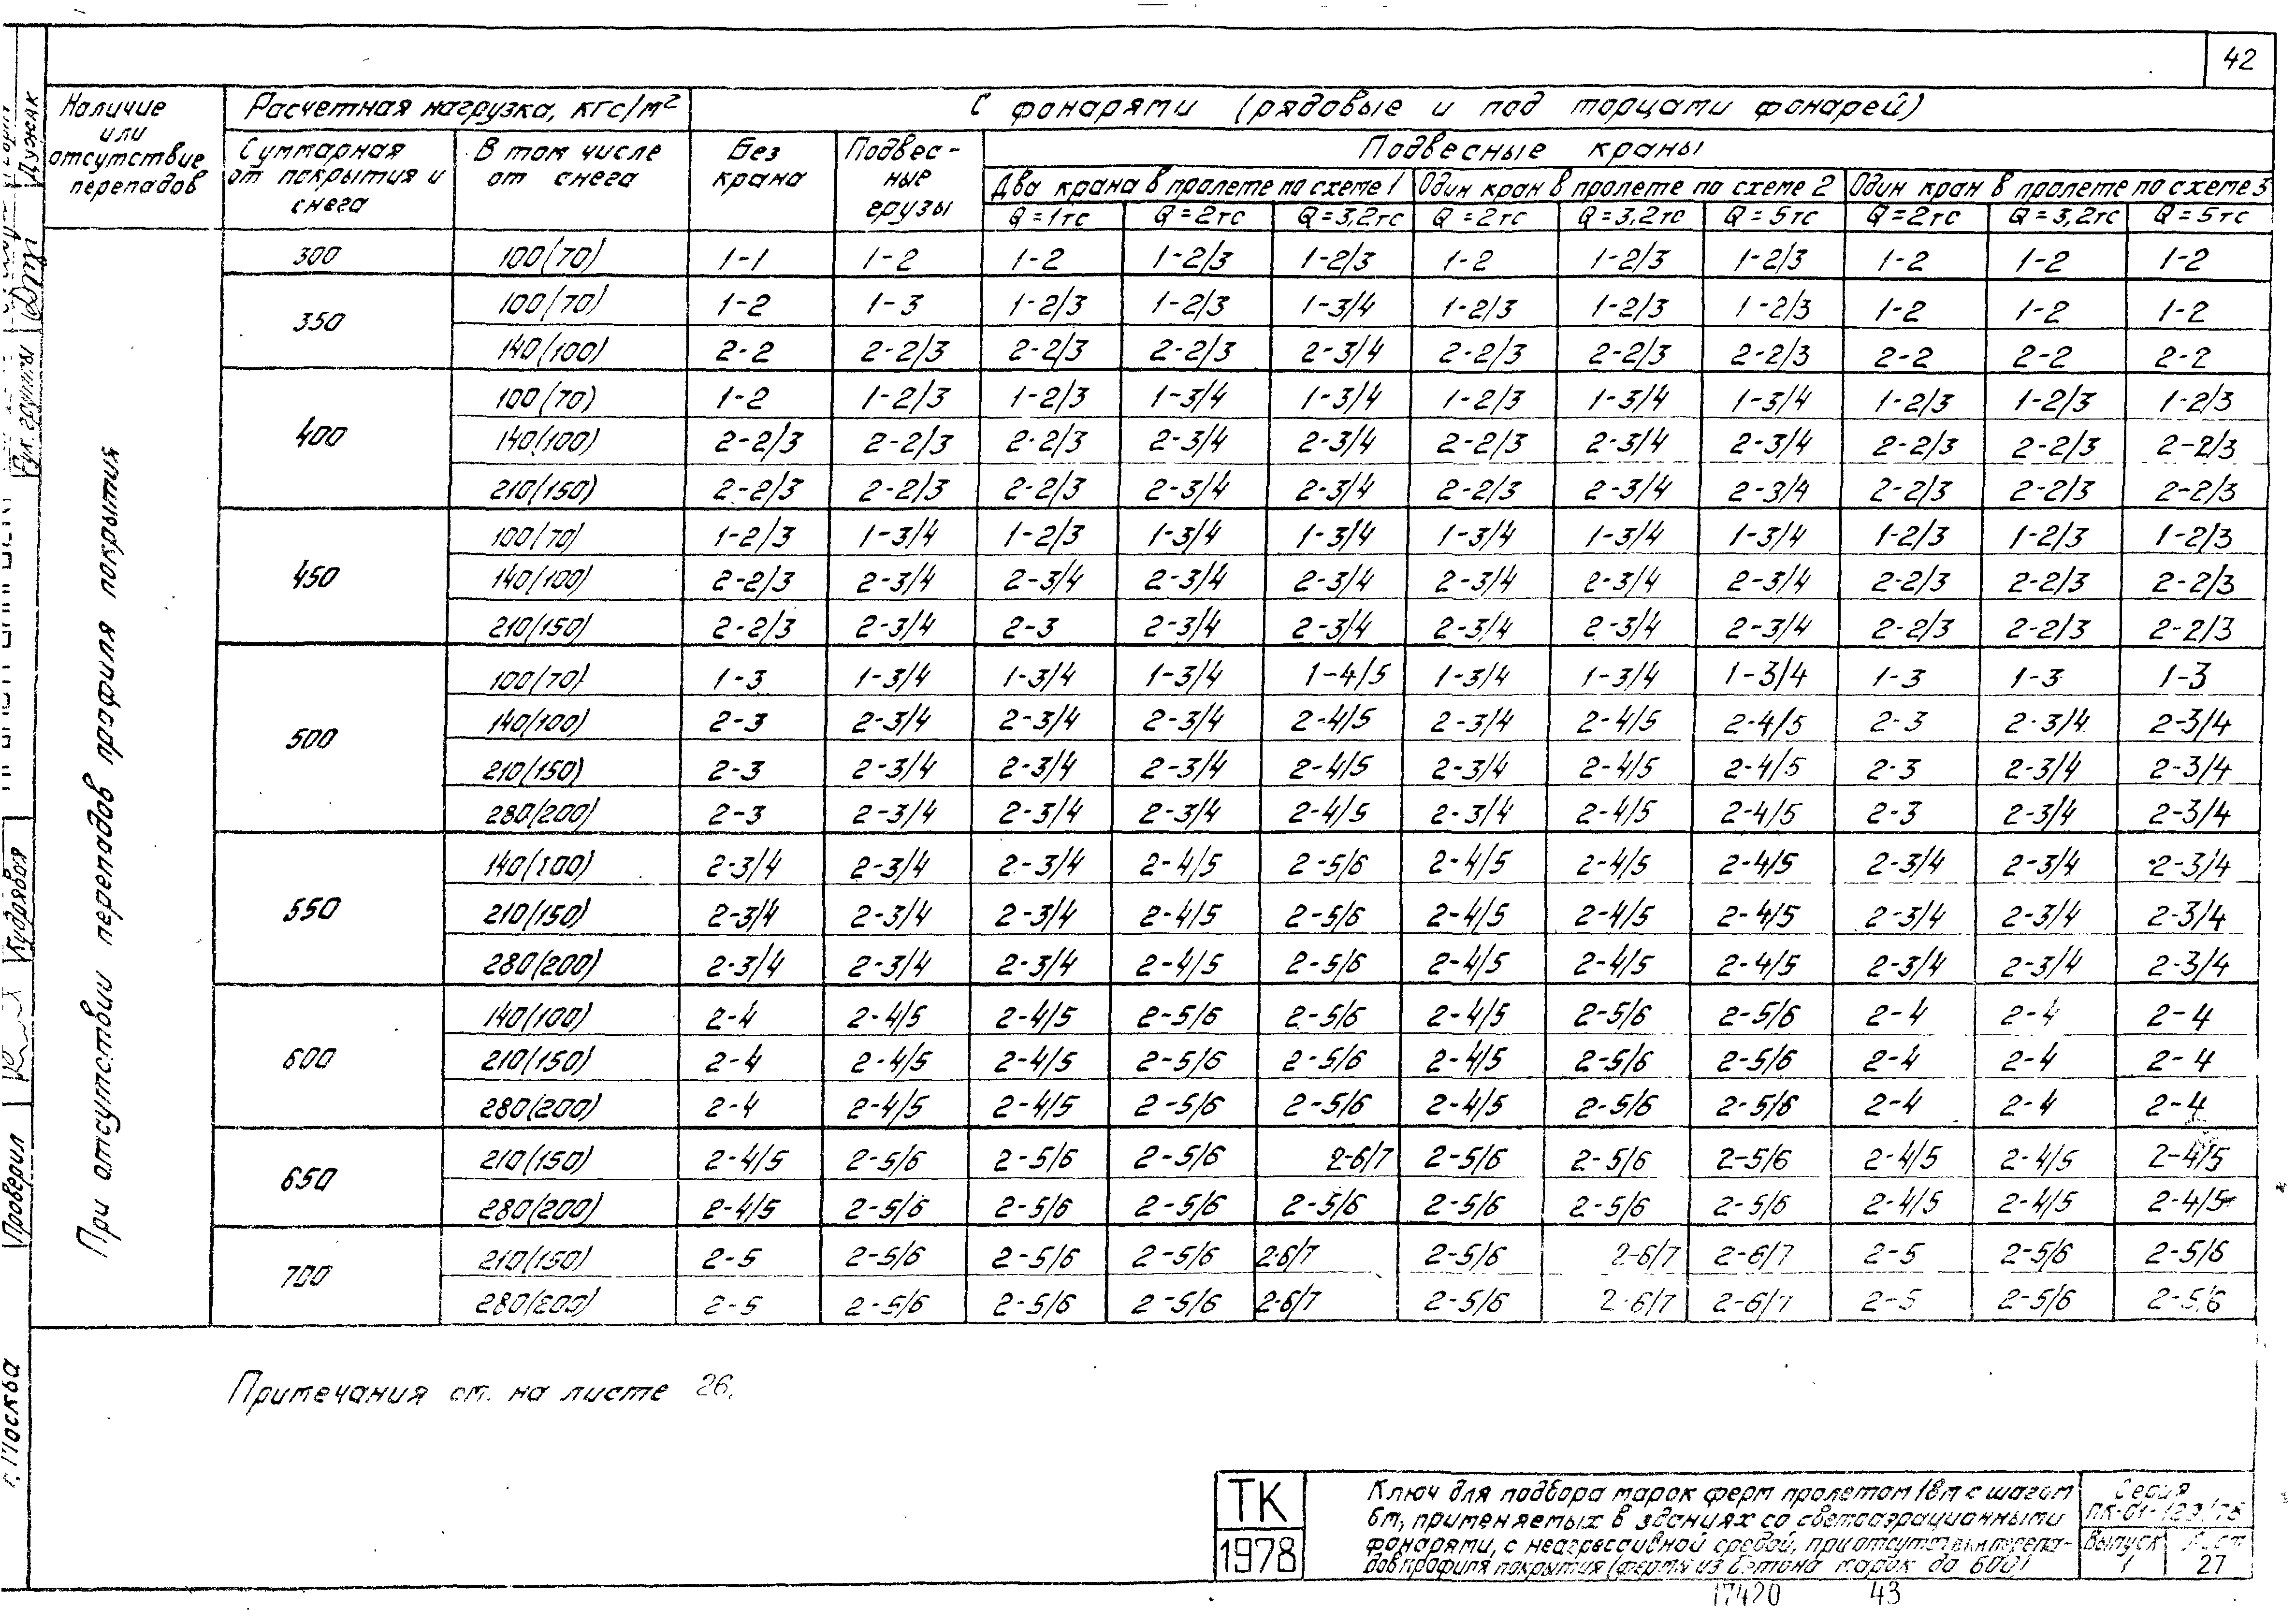 42
Наличие или отсутствие перепадов
Расчетная нагрузка, кгс/м²
С фонарями (рядовые и под торцами фонарей)
Суммарная от покрытия и снега
В том числе от снега
Без крана
Подвесные грузы
Подвесные краны
Два крана в пролете по схеме 1
Один кран в пролете по схеме 2
Один кран в пролете по схеме 3
Q=1тс Q=2тс Q=3,2тс Q=2тс Q=3,2тс Q=5тс Q=2тс Q=3,2тс Q=5тс
При отсутствии перепадов профиля покрытия
300 100(70) 1-1 1-2 1-2 1-2/3 1-2/3 1-2 1-2/3 1-2/3 1-2 1-2 1-2
350 100(70) 1-2 1-3 1-2/3 1-2/3 1-3/4 1-2/3 1-2/3 1-2/3 1-2 1-2 1-2
140(100) 2-2 2-2/3 2-2/3 2-2/3 2-3/4 2-2/3 2-2/3 2-2/3 2-2 2-2 2-2
400 100(70) 1-2 1-2/3 1-2/3 1-3/4 1-3/4 1-2/3 1-3/4 1-3/4 1-2/3 1-2/3 1-2/3
140(100) 2-2/3 2-2/3 2-2/3 2-3/4 2-3/4 2-2/3 2-3/4 2-3/4 2-2/3 2-2/3 2-2/3
210(150) 2-2/3 2-2/3 2-2/3 2-3/4 2-3/4 2-2/3 2-3/4 2-3/4 2-2/3 2-2/3 2-2/3
450 100(70) 1-2/3 1-3/4 1-2/3 1-3/4 1-3/4 1-3/4 1-3/4 1-3/4 1-2/3 1-2/3 1-2/3
140(100) 2-2/3 2-3/4 2-3/4 2-3/4 2-3/4 2-3/4 2-3/4 2-3/4 2-2/3 2-2/3 2-2/3
210(150) 2-2/3 2-3/4 2-3 2-3/4 2-3/4 2-3/4 2-3/4 2-3/4 2-2/3 2-2/3 2-2/3
500 100(70) 1-3 1-3/4 1-3/4 1-3/4 1-4/5 1-3/4 1-3/4 1-3/4 1-3 1-3 1-3
140(100) 2-3 2-3/4 2-3/4 2-3/4 2-4/5 2-3/4 2-4/5 2-4/5 2-3 2-3/4 2-3/4
210(150) 2-3 2-3/4 2-3/4 2-3/4 2-4/5 2-3/4 2-4/5 2-4/5 2-3 2-3/4 2-3/4
280(200) 2-3 2-3/4 2-3/4 2-3/4 2-4/5 2-3/4 2-4/5 2-4/5 2-3 2-3/4 2-3/4
550 140(100) 2-3/4 2-3/4 2-3/4 2-4/5 2-5/6 2-4/5 2-4/5 2-4/5 2-3/4 2-3/4 2-3/4
210(150) 2-3/4 2-3/4 2-3/4 2-4/5 2-5/6 2-4/5 2-4/5 2-4/5 2-3/4 2-3/4 2-3/4
280(200) 2-3/4 2-3/4 2-3/4 2-4/5 2-5/6 2-4/5 2-4/5 2-4/5 2-3/4 2-3/4 2-3/4
600 140(100) 2-4 2-4/5 2-4/5 2-5/6 2-5/6 2-4/5 2-5/6 2-5/6 2-4 2-4 2-4
210(150) 2-4 2-4/5 2-4/5 2-5/6 2-5/6 2-4/5 2-5/6 2-5/6 2-4 2-4 2-4
280(200) 2-4 2-4/5 2-4/5 2-5/6 2-5/6 2-4/5 2-5/6 2-5/6 2-4 2-4 2-4
650 210(150) 2-4/5 2-5/6 2-5/6 2-5/6 2-6/7 2-5/6 2-5/6 2-5/6 2-4/5 2-4/5 2-4/5
280(200) 2-4/5 2-5/6 2-5/6 2-5/6 2-5/6 2-5/6 2-5/6 2-5/6 2-4/5 2-4/5 2-4/5
700 210(150) 2-5 2-5/6 2-5/6 2-5/6 2-6/7 2-5/6 2-6/7 2-6/7 2-5 2-5/6 2-5/6
280(200) 2-5 2-5/6 2-5/6 2-5/6 2-6/7 2-5/6 2-6/7 2-6/7 2-5 2-5/6 2-5/6
Примечания см. на листе 26.
ТК
1978
Ключ для подбора марок ферм пролетом 18м с шагом
6м, применяемых в зданиях со светоаэрационными
фонарями, с неагрессивной средой, при отсутствии перепа-
дов профиля покрытия (фермы из бетона марок до 600)
Серия
ПК-01-129/78
Выпуск
1
Лист
27
17420 43
Рук. группы
Лужак
Кудрявая
Проверил
г. Москва